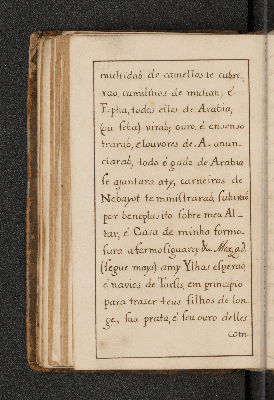 multidaõ de camellos te cubri-
raõ, camilhos de midian, é
Epha, todos elles de Arabia,
(ou seba) viraõ; ouro, é ensenso
traraõ, é louvores de .A. anun-
ciaraõ, todo é gado de Arabia
se ajuntara aty, carneiros de
Nebayot te ministraraõ, subiraõ
por beneplasito sobre meu Al-
tar, é Casa de minha formo-
sura aformosiguarey
(segue mays) amy Ylhas esperaõ,
é navios de Tarsis, em principio
para trazer teus filhos de lon-
ge, sua prata, é seu ouro delles
com